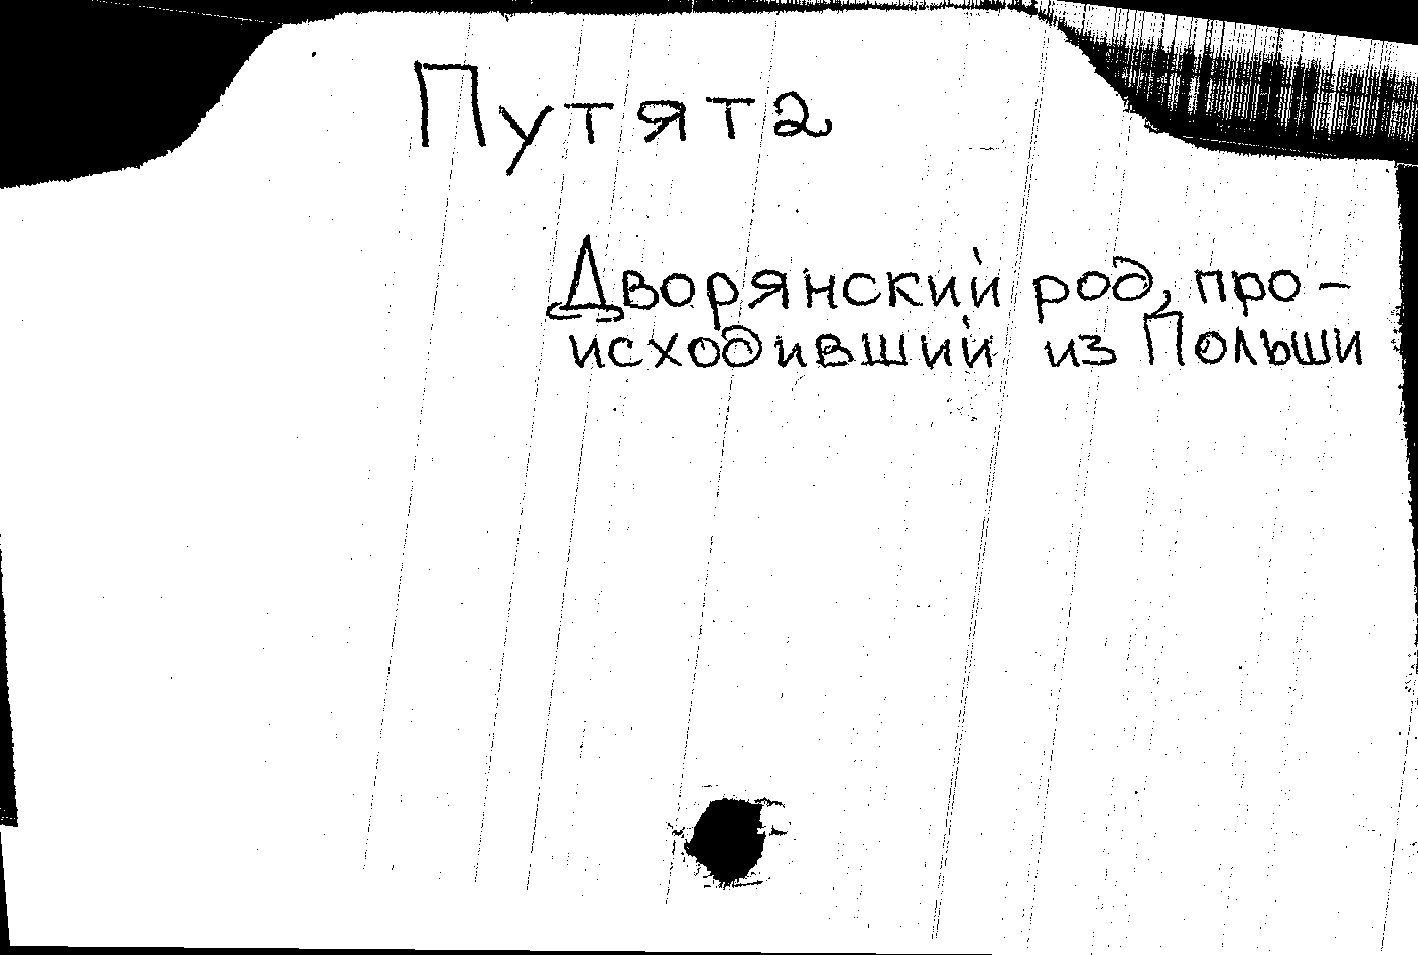 Путята
Дворянский род, про-
исходивший из Польши